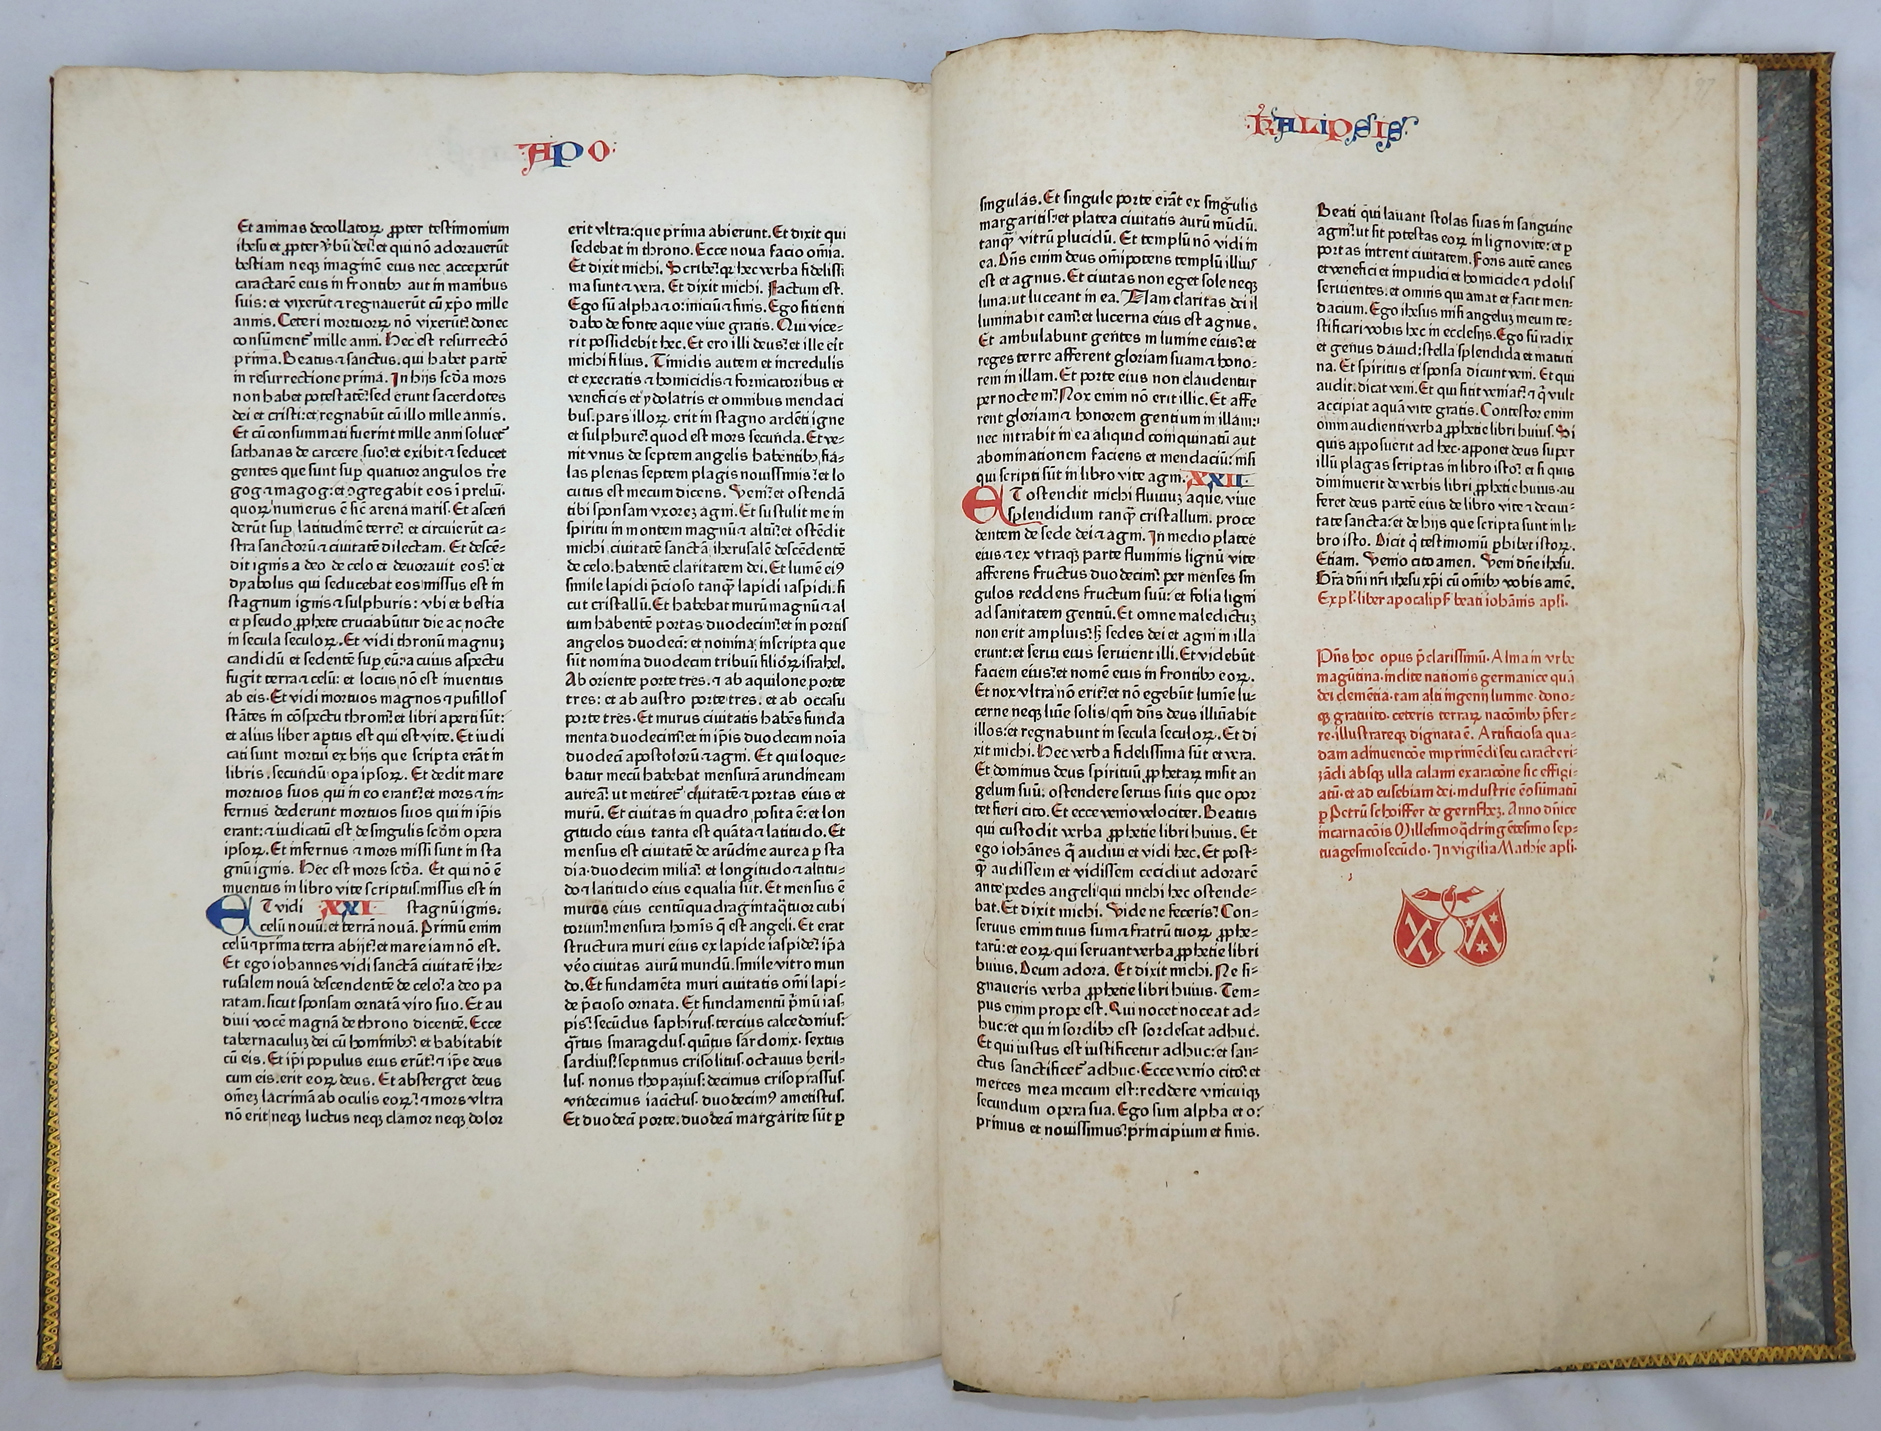 APO
Et animas decollatoꝝ ꝓpter testimonium
ihesu et ꝓpter v̾bū dei: et qui nō adorauerūt
bestiam neqꝫ imaginē eius nec acceperūt
caractarē eius in frontibꝰ aut in manibus
suis: et vixerūt ⁊ regnauerūt cū xp̄o mille
annis. Ceteri mortuoꝝ nō vixerūt: donec
consūment᷑ mille anni. Hec est resurrectō
prima. Beatus ⁊ sanctus, qui habet partē
in resurrectione prima. In hijs scd̄a mors
non habet potestatē: sed erunt sacerdotes
dei et cristi: et regnabūt cū illo mille annis.
Et cū consummati fuerint mille anni soluet᷑
sathanas de carcere suo: et exibit ⁊ seducet
gentes que sunt suꝑ quatuor angulos tr̄e
gog ⁊ magog: et ꝯgregabit eos ī preliū.
quoꝝ numerus ē sic̄ arena maris. Et ascen̄
derūt suꝑ latitudinē terre: et circuierūt ca-
stra sanctorū ⁊ ciuitatē dilectam. Et descē-
dit ignis a deo de celo et deuorauit eos: et
dyabolus qui seducebat eos missus est in
stagnum ignis ⁊ sulphuris: vbi et bestia
et pseudo ꝓphete cruciabūtur die ac nocte
in secula seculoꝝ. Et vidi thronū magnuꝫ
candidū et sedentē suꝑ eū: a cuius aspectu
fugit terra ⁊ celū: et locus nō est inuentus
ab eis. Et vidi mortuos magnos ⁊ pusillos
stātes in cōspectu throni: et libri aperti sūt:
et alius liber aꝑtus est qui est vite. Et iudi
cati sunt mortui ex hijs que scripta erāt in
libris, secundū oꝑa ipsoꝝ. Et dedit mare
mortuos suos qui in eo erant: et mors ⁊ in-
fernus dederunt mortuos suos qui in ip̄is
erant: ⁊ iudicatū est de singulis scd̄m opera
ipsoꝝ. Et infernus ⁊ mors missi sunt in sta
gnū ignis. Hec est mors scd̄a. Et qui nō ē
inuentus in libro vite scriptus, missus est in
ET vidi XXI stagnū ignis.
celū nouū. et terrā nouā. Primū enim
celū ⁊ prima terra abijt: et mare iam nō est.
Et ego iohannes vidi sanctā ciuitatē ihe-
rusalem nouā descendentē de celo: a deo pa
ratam. sicut sponsam ornatā viro suo. Et au
diui vocē magnā de throno dicentē. Ecce
tabernaculuꝫ dei cū hominibꝰ: et habitabit
cū eis. Et ip̄i populus eius erūt: ⁊ ip̄e deus
cum eis, erit eoꝝ deus. Et absterget deus
om̄eꝫ lacrimā ab oculis eoꝝ: ⁊ mors vltra
nō erit neqꝫ luctus neqꝫ clamor neqꝫ dolor
erit vltra: que prima abierunt. Et dixit qui
sedebat in throno. Ecce noua facio om̄ia.
Et dixit michi. Scribe: qꝛ hec verba fidelissi
ma sunt ⁊ vera. Et dixit michi. Factum est.
Ego sū alpha ⁊ o: iniciū ⁊ finis. Ego sitienti
dabo de fonte aque viue gratis. Qui vice-
rit possidebit hec. Et ero illi deus: et ille erit
michi filius. Timidis autem et incredulis
et execratis ⁊ homicidis ⁊ fornicatoribus et
veneficis et ydolatris et omnibus mendaci
bus: pars illoꝝ, erit in stagno ardēti igne
et sulphure: quod est mors secunda. Et ve-
nit vnus de septem angelis habentibꝰ fia-
las plenas septem plagis nouissimis: et lo
cutus est mecum dicens. Veni: et ostendā
tibi sponsam vxoreꝫ agni. Et sustulit me in
spiritu in montem magnū ⁊ altū: et ostēdit
michi ciuitatē sanctā iherusalē descēdentē
de celo, habentē claritatem dei. Et lumē eiꝰ
simile lapidi p̄cioso tanqͣ lapidi iaspidi. si
cut cristallū. Et habebat murū magnū ⁊ al
tum habentē portas duodecim: et in portis
angelos duodecā: et nomina inscripta que
sūt nomina duodecim tribuū filioꝝ israhel.
Ab oriente porte tres. ⁊ ab aquilone porte
tres: et ab austro porte tres. et ab occasu
porte tres. Et murus ciuitatis habēs funda
menta duodecim: et in ip̄is duodecim noīa
duodecā apostolorū ⁊ agni. Et qui loque-
batur mecū habebat mensurā arundineam
aureā: ut metiret᷑ ciuitatē ⁊ portas eius et
murū. Et ciuitas in quadro posita ē: et lon
gitudo eius tanta est quāta ⁊ latitudo. Et
mensus est ciuitatē de arūdine aurea ꝑ sta
dia duodecim milia: et longitudo ⁊ altitu-
do ⁊ latitudo eius equalia sūt. Et mensus ē
muros eius centū quadraginta qͣtuor cubi
torum: mensura homīs q̄ est angeli. Et erat
structura muri eius ex lapide iaspide: ip̄a
vēo ciuitas aurū mundū, simile vitro mun
do. Et fundamēta muri ciuitatis om̄i lapi-
de p̄cioso ornata. Et fundamentū p̄mū ias-
pis: secūdus saphirus. tercius calcedonius:
qͣrtus smaragdus. quītus sardonix. sextus
sardius: septimus crisolitus. octauus beril-
lus. nonus thopazius: decimus crisoprassus.
vndecimus iacīctus. duodecimꝰ ametistus.
Et duodecī porte. duodecī margarite sūt ꝑ
KALIPSIS
singulas. Et singule porte erāt ex singulis
margaritis: et platea ciuitatis aurū mūdū.
tanqͣ vitrū ꝑlucidū. Et templū nō vidi in
ea. Dn̄s enim deus om̄ipotens templū illius
est et agnus. Et ciuitas non eget sole neqꝫ
luna. ut luceant in ea. Nam claritas dei il
luminabit eam: et lucerna eius est agnus.
Et ambulabunt gentes in lumine eius: et
reges terre afferent gloriam suam ⁊ hono-
rem in illam. Et porte eius non claudentur
per noctem: Nox enim nō erit illic. Et affe
rent gloriam ⁊ honorem gentium in illam:
nec intrabit in ea aliquid coinquinatū aut
abominationem faciens et mendaciū: nisi
qui scripti sūt in libro vite agni. XXII
ET ostendit michi fluuiuꝫ aque, viue
splendidum tanqͣ cristallum. proce
dentem de sede dei ⁊ agni. In medio platee
eius ⁊ ex vtraqꝫ parte fluminis lignū vite
afferens fructus duodecim: per menses sin
gulos reddens fructum suū: et folia ligni
ad sanitatem gentiū. Et omne maledictuꝫ
non erit amplius: sꝫ sedes dei et agni in illa
erunt: et serui eius seruient illi. Et videbūt
faciem eius: et nomē eius in frontibꝰ eoꝝ.
Et nox vltra nō erit: et nō egebūt lumīe lu-
cerne neqꝫ lumīe solis, qm̄ dn̄s deus illuīabit
illos: et regnabunt in secula seculoꝝ. Et di
xit michi. Hec verba fidelissima sūt et vera.
Et dominus deus spirituū ꝓphetaꝝ misit an
gelum suū: ostendere seruis suis que opor
tet fieri cito. Et ecce venio velociter. Beatus
qui custodit verba ꝓphetie libri huius. Et
ego iohānes q̄ audiui et vidi hec. Et post-
qͣ audissem et vidissem cecidi ut adorarē
ante pedes angeli qui michi hec ostende-
bat. Et dixit michi. Vide ne feceris: Con-
seruus enim tuus sum ⁊ fratrū tuoꝝ, ꝓphe-
tarū: et eoꝝ qui seruant verba ꝓphetie libri
huius. Deum adora. Et dixit michi. Ne si-
gnaueris verba ꝓphetie libri huius. Tem-
pus enim prope est. Qui nocet noceat ad-
huc: et qui in sordibꝰ est sordescat adhuc.
Et qui iustus est iustificetur adhuc: et san-
ctus sanctificet᷑ adhuc. Ecce venio cito: et
merces mea mecum est: reddere vnicuiqꝫ
secundum opera sua. Ego sum alpha et o:
primus et nouissimus: principium et finis.
Beati qui lauant stolas suas in sanguine
agni: ut sit potestas eoꝝ in ligno vite: et ꝑ
portas intrent ciuitatem. Foris autē canes
et venefici et impudici et homicide ⁊ ydolis
seruientes. et omnis qui amat et facit men-
dacium. Ego ihesus misi angeluꝫ meum te-
stificari vobis hec in ecclesijs. Ego sū radix
et genus dauid: stella splendida et matuti
na. Et spiritus et sponsa dicunt veni. Et qui
audit. dicat veni. Et qui sitit veniat: ⁊ q̄ vult
accipiat aquā vite gratis. Contestor enim
omni audienti verba ꝓphetie libri huius. Si
quis apposuerit ad hec. apponet deus super
illū plagas scriptas in libro isto: et si quis
diminuerit de verbis libri ꝓphetie huius. au
feret deus partē eius de libro vite ⁊ de ciui-
tate sancta: et de hijs que scripta sunt in li-
bro isto. Dicit q̄ testimoniū ꝑhibet istoꝝ.
Etiam. Venio cito amen. Veni dn̄e ihesu.
Gr̄a dn̄i nr̄i ihesu xp̄i cū om̄ibꝰ vobis amē.
Expl. liber apocalipſ beati iohānis apl̄i.
Pn̄s hoc opus p̄clarissimū. Alma in vrbe
magūtina. inclite nationis germanice quā
dei clemētia. tam alti ingenij lumine. dono-
qꝫ gratuito. ceteris terraꝝ nacōnibꝰ p̄fer-
re. illustrareqꝫ dignata ē. Artificiosa qua-
dam adinuencōe imprimēdi seu caracteri-
zādi absqꝫ ulla calami exaracōne sic effigi-
atū. et ad eusebiam dei. industrie ē ꝯsumatū
ꝑ Petrū schoiffer de gernsheȝ. Anno dn̄ice
incarnacōis Millesimo q̄dringētesimo sep-
tuagesimo secūdo. In vigilia Mathie apl̄i.